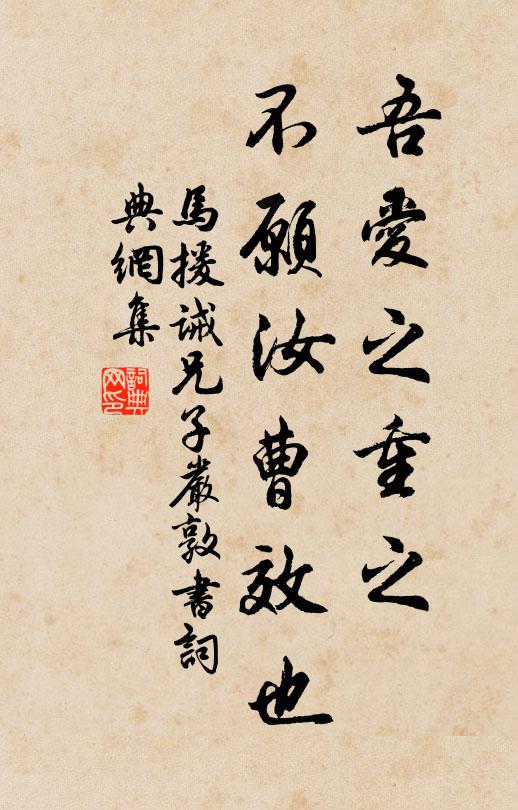 吾愛之重之
不願汝曹效也
馬援誡兄子嚴敦書詞
典網集
詞典网印